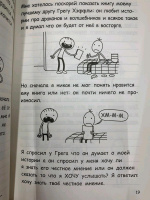 Мне хотелось поскорей показать книгу моему
лучшему другу Грегу Хэффли он любит исто
рии про драконов и волшебников и всякое такое
и я думал что он будет от неё в восторге.
Но сначала я никак не мог понять нравится
ему книга или нет. он почти ничего не про
износил.
ХМ-М-М.
Я спросил у Грега что он думает о моей
истории а он спросил у меня хочу ли
я знать его честное мнение или он должен
сказать то что я ХОЧУ услышать? Я ответил
хочу знать твоё честное мнение.
19